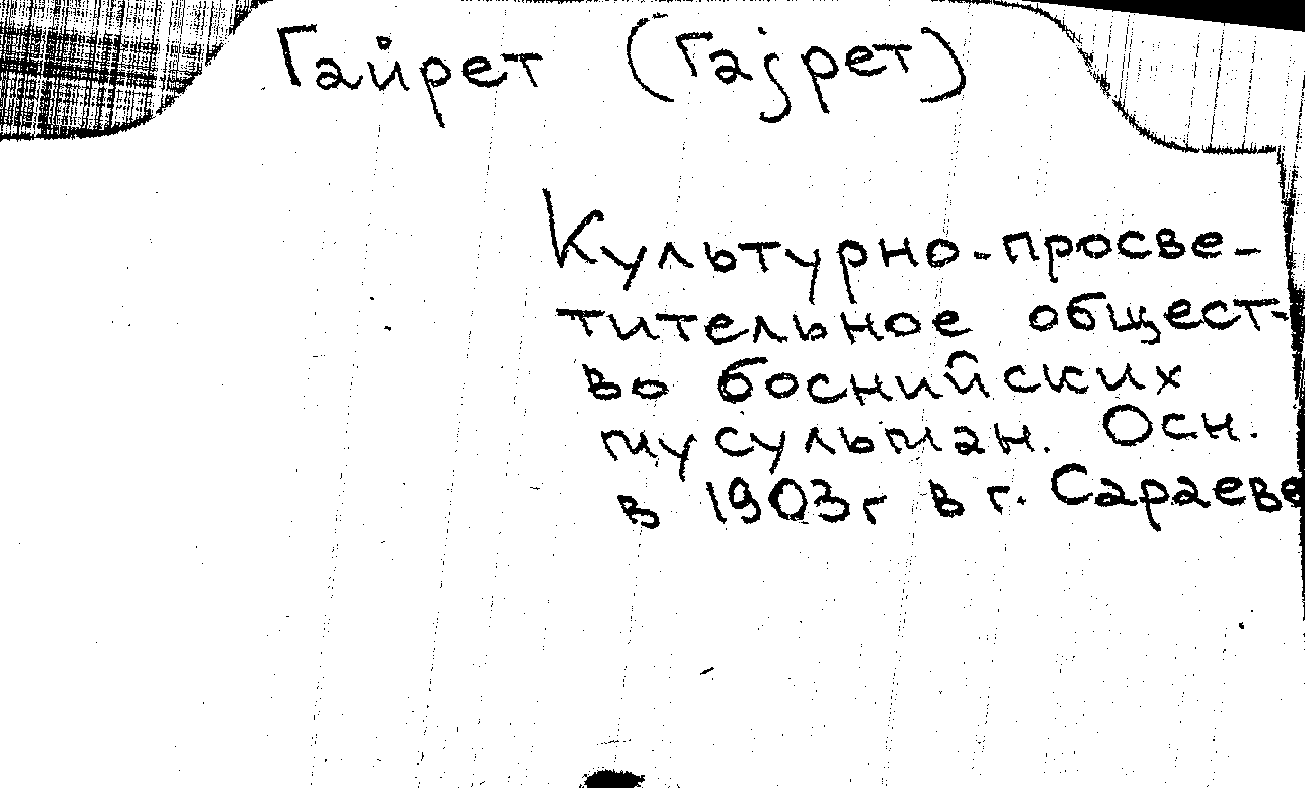 Гайрет (Гаjрет)
Культурно-просве-
тительное общест-
во боснийских
мусульман. Осн.
в 1903г в г. Сараеве